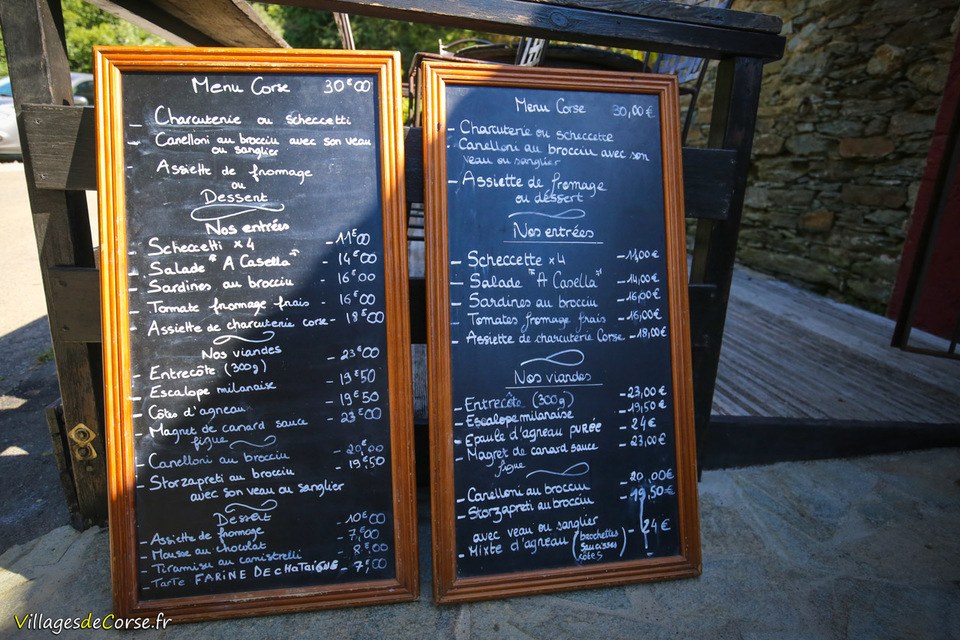 Menu Corse 30€00
- Charcuterie ou scheccetti
- Canelloni au brocciu avec son veau
ou sanglier
- Assiette de fromage
ou
Dessert
Nos entrées
- Scheccetti x4 - 11€00
- Salade "A Casella" - 14€00
- Sardines au brocciu - 16€00
- Tomate fromage frais - 16€00
- Assiette de charcuterie corse - 18€00
Nos viandes
- Entrecôte (300g) - 23€00
- Escalope milanaise - 19€50
- Côtes d'agneau - 19€50
- Magret de canard sauce - 23€00
figue
- Canelloni au brocciu - 20€00
- Storzapreti au brocciu - 19€50
avec son veau ou sanglier
Dessert
- Assiette de fromage - 10€00
- Mousse au chocolat - 7€00
- Tiramisu au canistrelli - 8€00
- Tarte FARINE DE CHATAIGNE - 7€00
Menu Corse 30,00€
- Charcuterie ou scheccette
- Canelloni au brocciu avec son
veau ou sanglier
- Assiette de fromage
ou déssert
Nos entrées
- Scheccette x4 - 11,00€
- Salade "A Casella" - 14,00€
- Sardines au brocciu - 16,00€
- Tomates fromage frais - 16,00€
- Assiette de charcuterie Corse - 18,00€
Nos viandes
- Entrecôte (300g) - 23,00€
- Escalope milanaise - 19,50€
- Epaule d'agneau PURÉE - 24€
- Magret de canard sauce - 23,00€
figue
- Canelloni au brocciu - 20,00€
- Storzapreti au brocciu - 19,50€
avec veau ou sanglier
- Mixte d'agneau (brochettes saucisses côtes) - 24€
VillagesdeCorse.fr